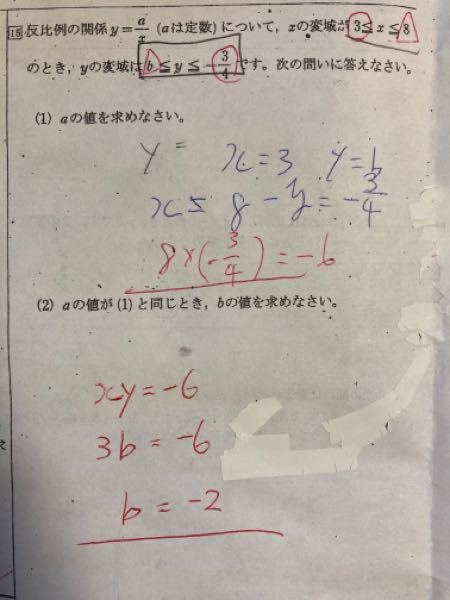 15 反比例の関係 y = a/x (aは定数) について, xの変域が 3 ≦ x ≦ 8
のとき, yの変域は b ≦ y ≦ -3/4 です。次の問いに答えなさい。
(1) aの値を求めなさい。
y = x = 3 y = b
x = 8 - y = -3/4
8×(-3/4) = -6
(2) aの値が (1) と同じとき, bの値を求めなさい。
xy = -6
3b = -6
b = -2